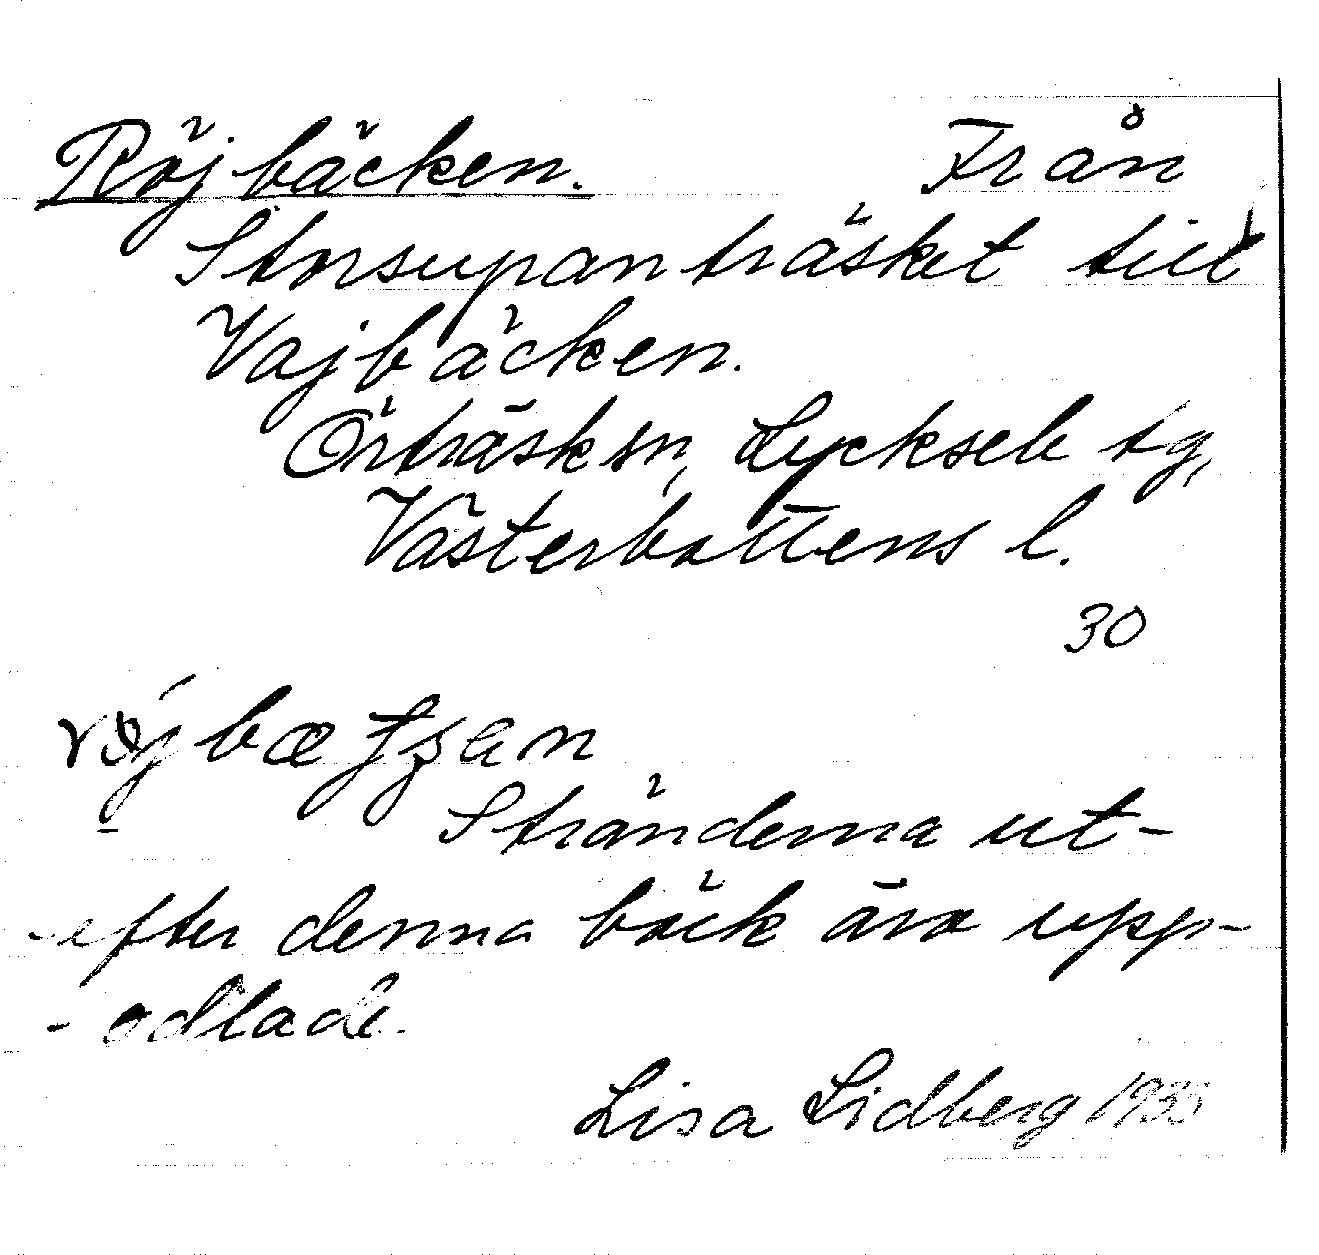 Röjbäcken. Från
Storsupanträsket till
Vajbäcken.
Örträsk sn, Lycksele tg,
Västerbottens l.
30
Stränderna ut-
-efter denna bäck äro upp-
-odlade.
Lisa Lidberg 1935